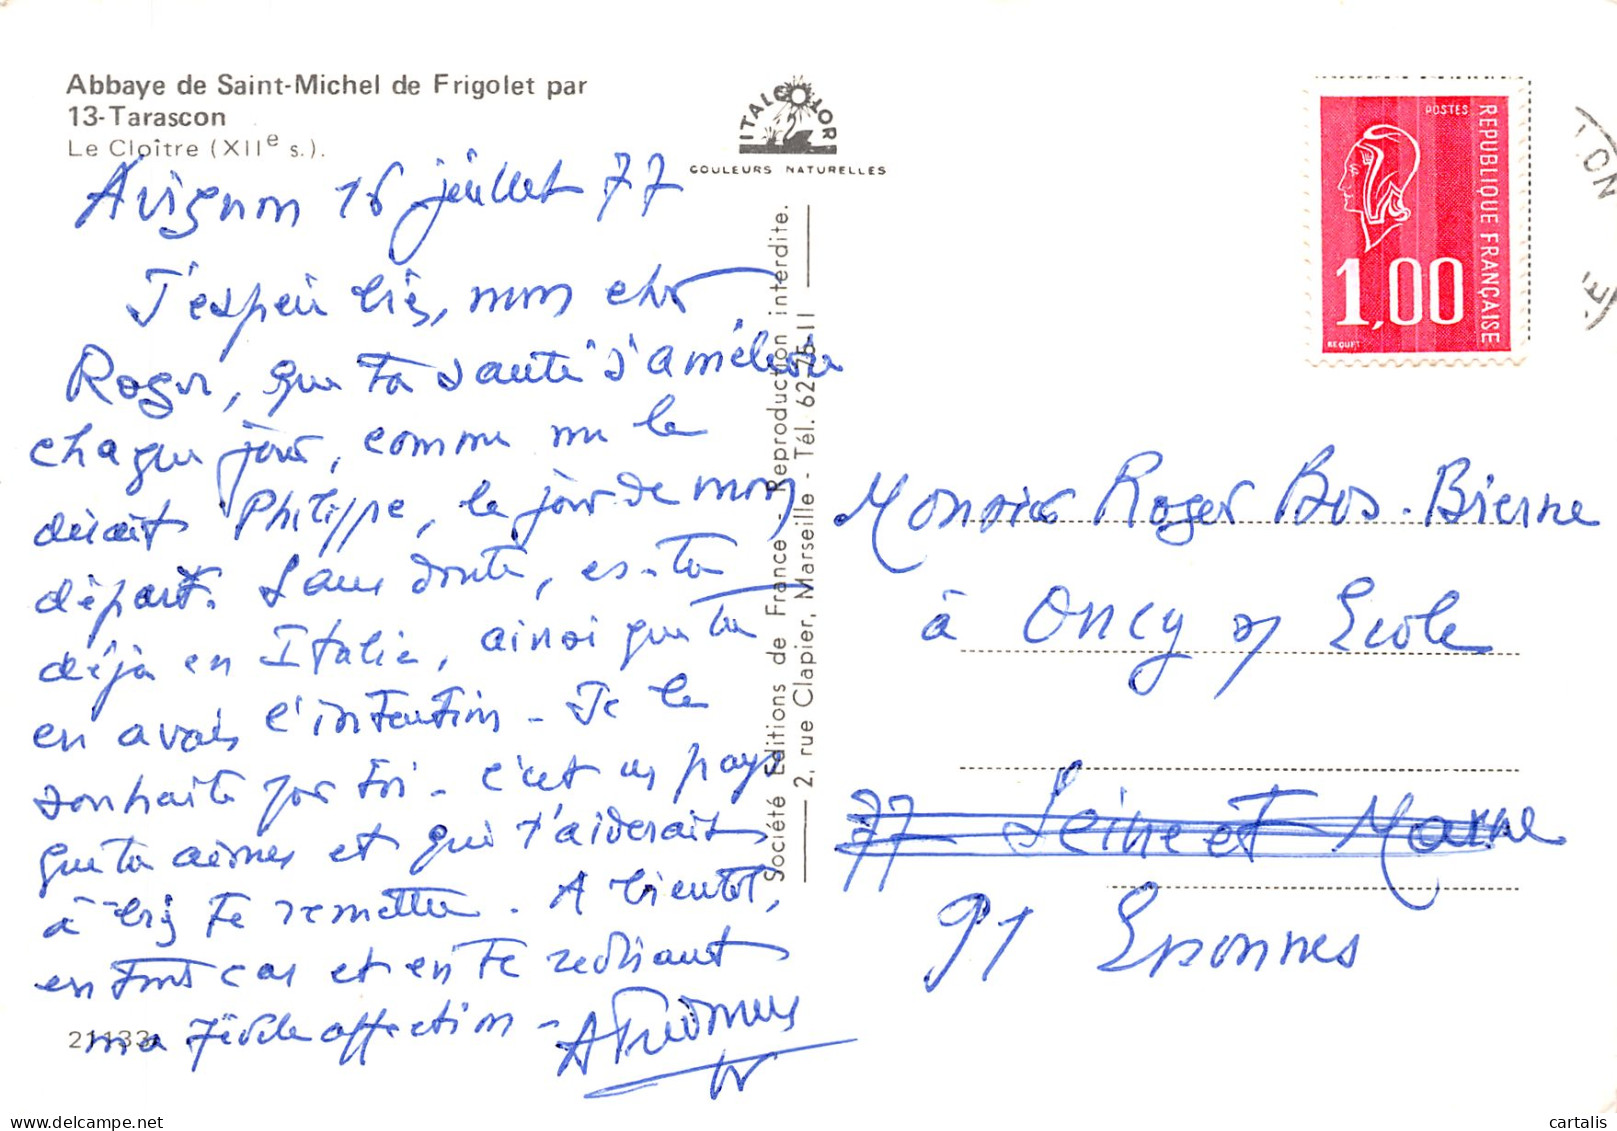 Abbaye de Saint-Michel de Frigolet par
13-Tarascon
Le Cloître (XIIe s.).
ITALCOLOR
COULEURS NATURELLES
Avignon 16 juillet 77
J'espère bien, mon cher
Roger, que ta santé s'améliore
chaque jour, comme me le
disait Philippe, le jour de mon
départ. Sans doute, es-tu
déjà en Italie, ainsi que tu
en avais l'intention - Je le
souhaite pour toi - c'est un pays
que tu aimes et qui t'aiderait
à bien te remettre. A bientôt,
en tout cas et en te redisant
ma fidèle affection -
21133
Société Editions de France - Reproduction interdite.
2, rue Clapier, Marseille - Tél. 62-75-11
POSTES
REPUBLIQUE FRANÇAISE
1,00
BEQUET
Monsieur Roger Bos-Bierne
à Oncy s/ Ecole
77 Seine et Marne
91 Essonnes
cartalis
www.delcampe.net